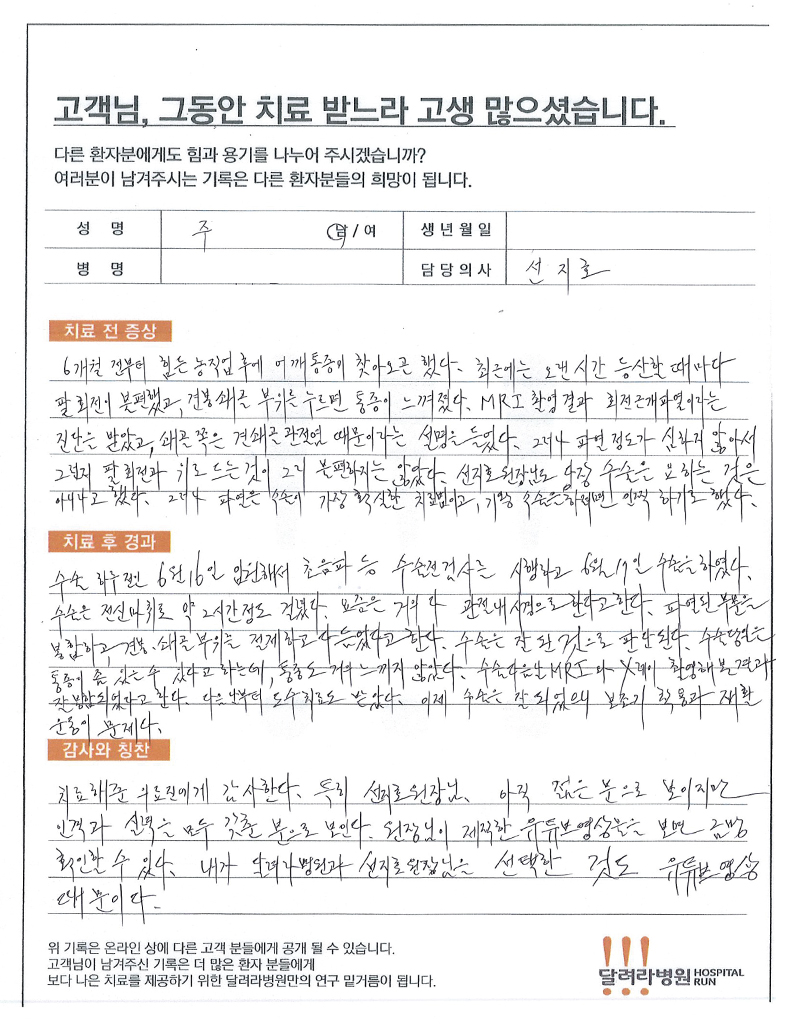 고객님, 그동안 치료 받느라 고생 많으셨습니다.
다른 환자분에게도 힘과 용기를 나누어 주시겠습니까?
여러분이 남겨주시는 기록은 다른 환자분들의 희망이 됩니다.
성 명 주 남 / 여 생년월일
병 명 담당의사 선지호
치료 전 증상
6개월 전부터 힘든 농작업 후에 어깨통증이 찾아오곤 했다. 최근에는 오랜시간 등산할 때마다
팔 회전이 불편했고, 견봉쇄골 부위를 누르면 통증이 느껴졌다. MRI 촬영결과 회전근개파열이라는
진단을 받았고, 쇄골쪽은 견쇄골관절염 때문이라는 설명을 들었다. 그러나 파열정도가 심하지 않아서
그런지 팔 회전과 위로 드는 것이 그리 불편하지는 않았다. 선지호원장님도 당장 수술을 요하는 것은
아니라고 했다. 그러나 파열은 수술이 가장 확실한 치료법이고, 기왕 수술을 하려면 일찍 하기로 했다.
치료 후 경과
수술 하루전인 6월 16일 입원해서 초음파 등 수술전검사를 시행하고 6월 17일 수술을 하였다.
수술은 전신마취로 약 2시간 정도 걸렸다. 요즘은 거의 다 관절내시경으로 한다고 한다. 파열된 부분을
봉합하고, 견봉.쇄골 부위는 절제하고 다듬었다고 한다. 수술은 잘 된 것으로 판단된다. 수술당일은
통증이 좀 있을 수 있다고 하는데, 통증도 거의 느끼지 않았다. 수술다음날 MRI와 X레이 촬영해 본 결과
잘 봉합되었다고 한다. 다음날부터 도수치료도 받았다. 이제 수술은 잘 되었으니 보조기 착용과 재활
운동이 문제다.
감사와 칭찬
치료해준 의료진에게 감사한다. 특히 선지호원장님. 아직 젊은 분으로 보이지만
인격과 실력을 모두 갖춘 분으로 보인다. 원장님이 제작한 유튜브영상들을 보면 금방
확인할 수 있다. 내가 달려라병원과 선지호원장님을 선택한 것도 유튜브영상
때문이다.
위 기록은 온라인 상에 다른 고객 분들에게 공개 될 수 있습니다.
고객님이 남겨주신 기록은 더 많은 환자 분들에게
보다 나은 치료를 제공하기 위한 달려라병원만의 연구 밑거름이 됩니다.
달려라병원 HOSPITAL RUN